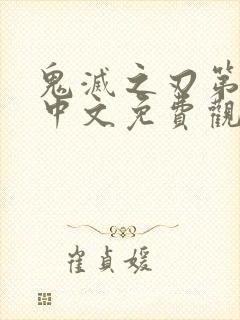 鬼滅之刃第
中文免費觀
崔貞媛